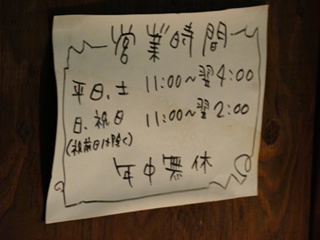 営業時間
平日、土 11:00~翌4:00
日、祝日 11:00~翌2:00
(祝前日は除く)
年中無休